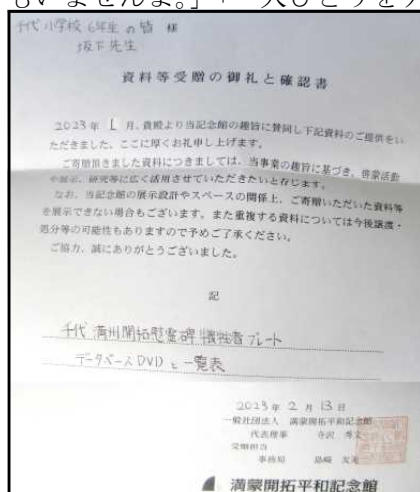 千代小学校 6年生の皆 様
坂下先生
資料等受贈の御礼と確認書
2023年 1 月、貴殿より当記念館の趣旨に賛同し下記資料のご提供をい
ただきました、ここに厚くお礼申し上げます。
ご寄贈頂きました資料につきましては、当事業の趣旨に基づき、啓蒙活動
や展示、研究等に広く活用させていただきたいと存じます。
なお、当記念館の展示設計やスペースの関係上、ご寄贈いただいた資料等
を展示できない場合もございます。また重複する資料については今後譲渡・
処分等の可能性もありますので予めご了承ください。
ご協力、誠にありがとうございました。
記
千代 満州開拓慰霊碑 犠牲者プレート
データベースDVDと一覧表
2023年 2 月 13 日
一般社団法人 満蒙開拓平和記念館
代表理事 寺沢 秀文
受贈担当
事務局 島崎 友美
満蒙開拓平和記念館